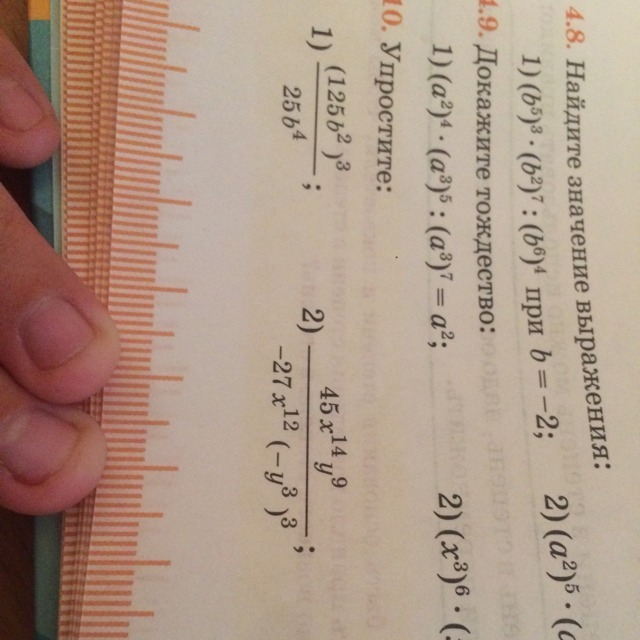 4.8. Найдите значение выражения:
1) (b⁵)³ · (b²)⁷ : (b⁶)⁴ при b = −2; 2) (a²)⁵ ·
4.9. Докажите тождество:
1) (a²)⁴ · (a³)⁵ : (a³)⁷ = a²; 2) (x³)⁶ ·
10. Упростите:
1) (125b²)³ / 25b⁴; 2) 45x¹⁴y⁹ / −27x¹²(−y³)³;